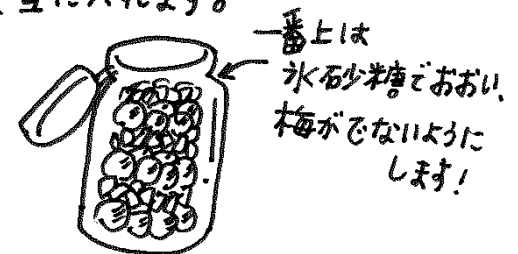 に入れます。
一番上は
氷砂糖でおおい、
梅がでないように
します!